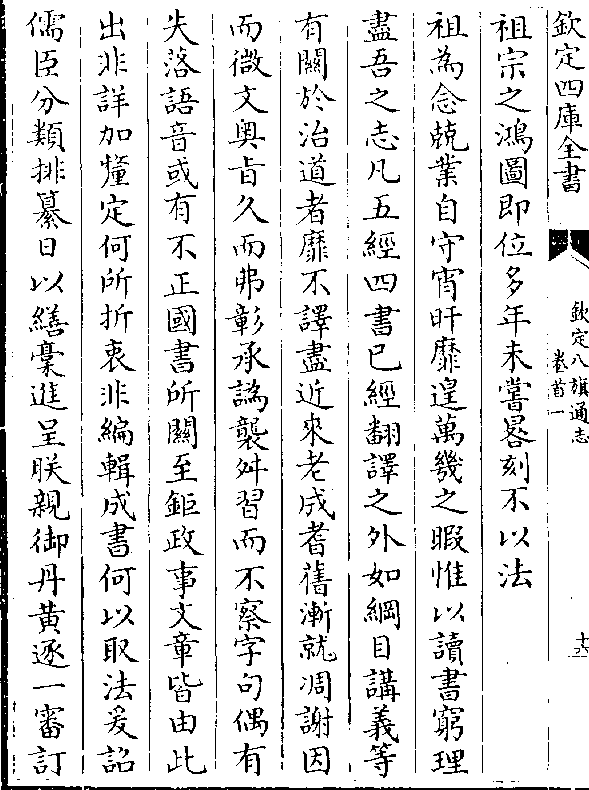 欽定四庫全書
欽定八旗通志
卷首一
祖宗之鴻圖即位多年未嘗晷刻不以法
祖為念兢業自守宵旰靡遑萬幾之暇惟以讀書窮理
盡吾之志凡五經四書已經翻譯之外如綱目講義等
有關於治道者靡不譯盡近來老成耆舊漸就凋謝因
而微文奧旨久而弗彰承譌襲舛習而不察字句偶有
失落語音或有不正國書所關至鉅政事文章皆由此
出非詳加釐定何所折衷非編輯成書何以取法爰詔
儒臣分類排纂日以繕稾進呈朕親御丹黄逐一審訂